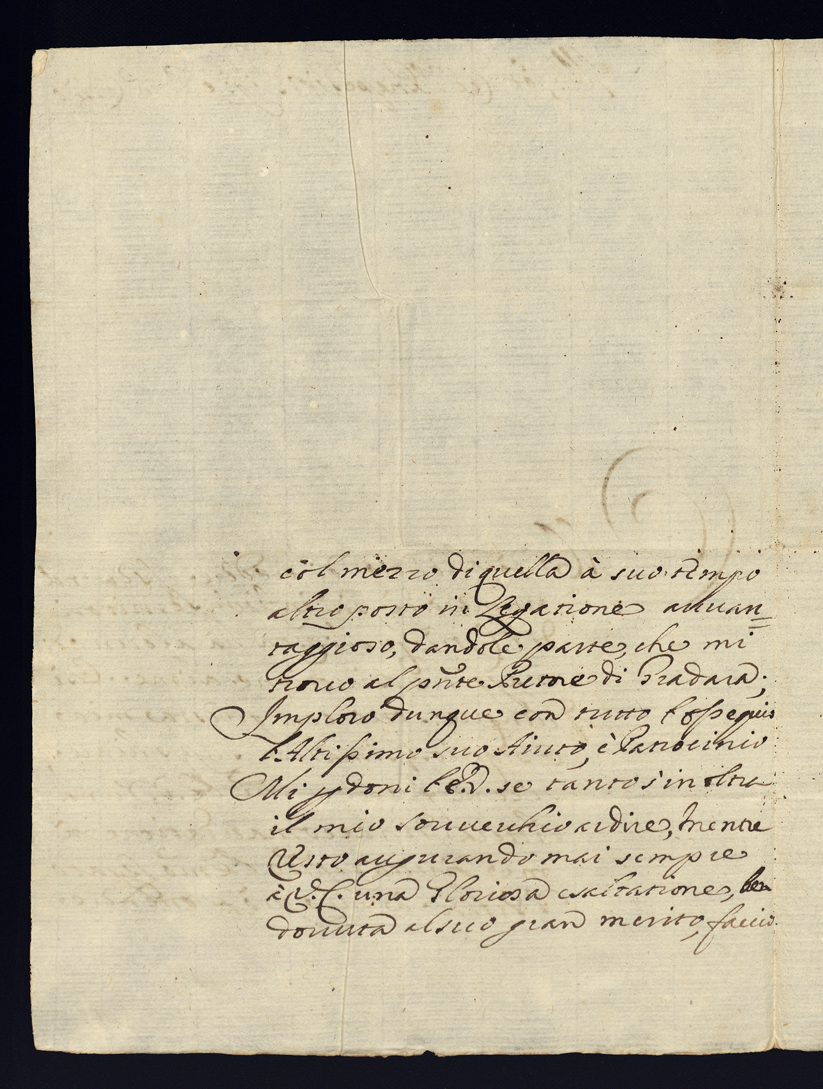 col mezzo di quella à suo tempo
altro posto in Legatione auuan=
taggioso, dandole parte, che mi
trouo al pñte Pretore di Gradara;
Imploro dunque con tutto l'ossequio
l'Altissimo suo Aiuto, è Patrocinio
Mi perdoni l'E.V. se tant'os'inoltra
il mio souuerchio ardire, mentre
Resto augurando mai sempre
à V.E. una Gloriosa esaltatione, ben
douuta al suo gran merito, faccio